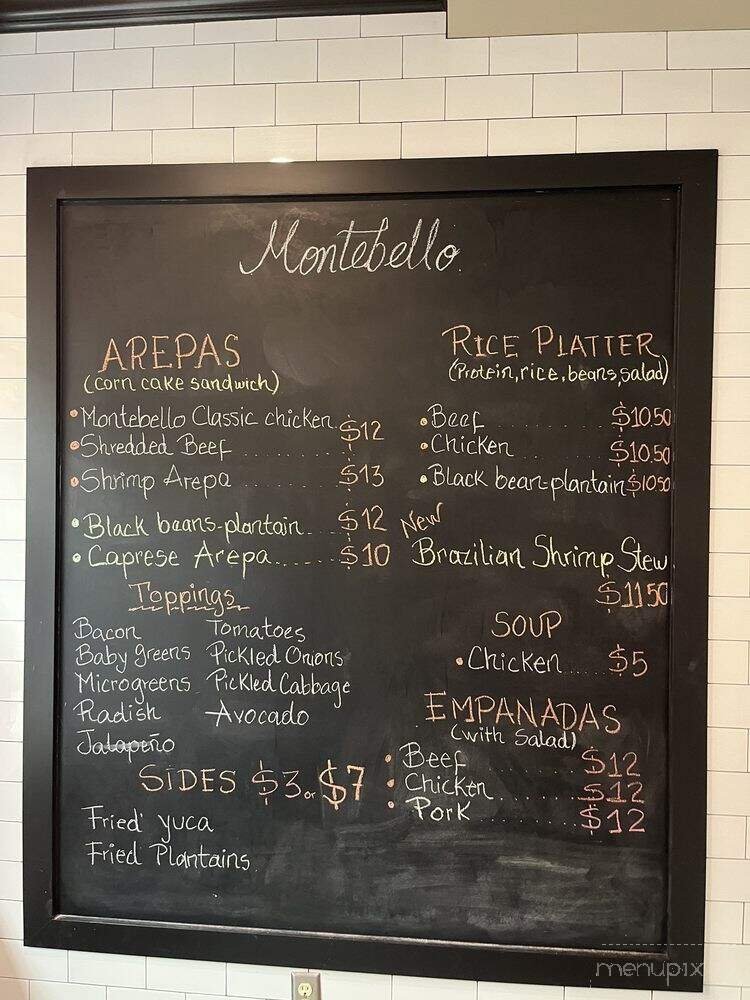 Montebello
AREPAS
(corn cake sandwich)
• Montebello Classic chicken
• Shredded Beef ........ $12
• Shrimp Arepa ........ $13
• Black beans-plantain... $12
• Caprese Arepa....... $10
Toppings
Bacon
Baby greens
Microgreens
Radish
Jalapeño
Tomatoes
Pickled Onions
Pickled Cabbage
Avocado
SIDES $3 or $7
Fried yuca
Fried Plantains
RICE PLATTER
(Protein, rice, beans, salad)
• Beef ........ $10.50
• Chicken ........ $10.50
• Black bean-plantain $10.50
New
Brazilian Shrimp Stew
$11.50
SOUP
• Chicken ..... $5
EMPANADAS
(with Salad)
• Beef ........ $12
• Chicken ........ $12
• Pork ........ $12
menupix